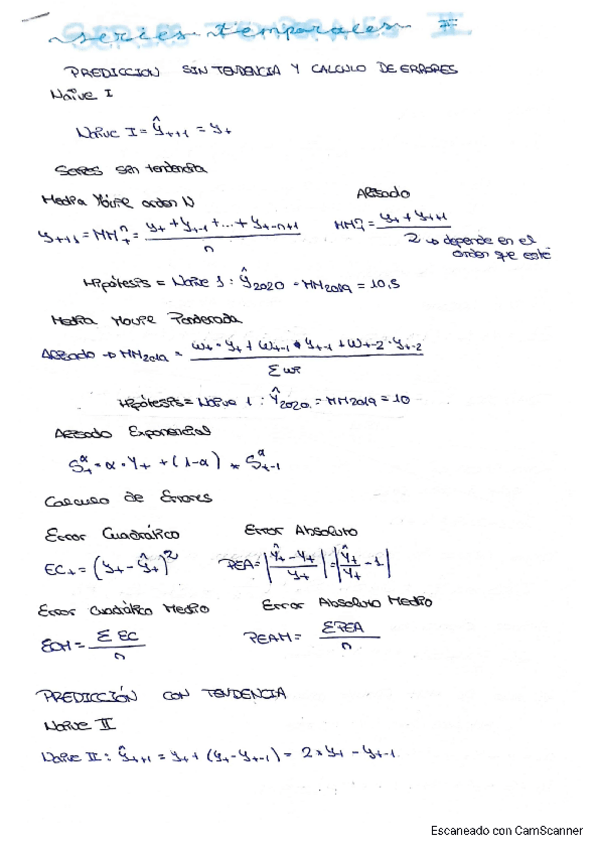 series temporales II
PREDICCION SIN TENDENCIA Y CALCULO DE ERRORES
Naïve I
Naïve I = ŷₜ₊₁ = yₜ
Series sin tendencia
Media Móvil orden N
Alisado
yₜ₊₁ = MMₜⁿ = (yₜ + yₜ₋₁ + ... + yₜ₋ₙ₊₁) / n
MMₜⁿ = (yₜ + yₜ₊₁) / 2 → depende en el
orden que esté
Hipótesis = Naïve 1 : Ŷ2020 = MM2019 = 10,5
Media Movil Ponderada
Alisado → MM2019 = (wₜ · yₜ + wₜ₋₁ · yₜ₋₁ + wₜ₋₂ · yₜ₋₂) / Σ wi
Hipótesis = Naive 1 : Ŷ2020 = MM2019 = 10
Alisado Exponencial
Sₜᵅ = α · Yₜ + (1-α) * Sₜ₋₁ᵅ
Calculo de Errores
Error Cuadrático
Error Absoluto
ECₜ = (yₜ - ŷₜ)²
PEA = |(Ŷₜ - Yₜ) / Yₜ| = |Ŷₜ / Yₜ - 1|
Error Cuadrático Medio
Error Absoluto Medio
ECM = Σ EC / n
PEAM = Σ PEA / n
PREDICCIÓN CON TENDENCIA
Naive II
Naïve II : ŷₜ₊₁ = yₜ + (yₜ - yₜ₋₁) = 2 * yₜ - yₜ₋₁
Escaneado con CamScanner